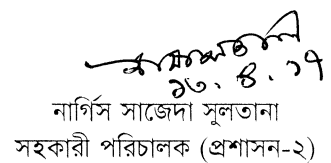 ১৩.৪.১৭
নার্গিস সাজেদা সুলতানা
সহকারী পরিচালক (প্রশাসন-২)